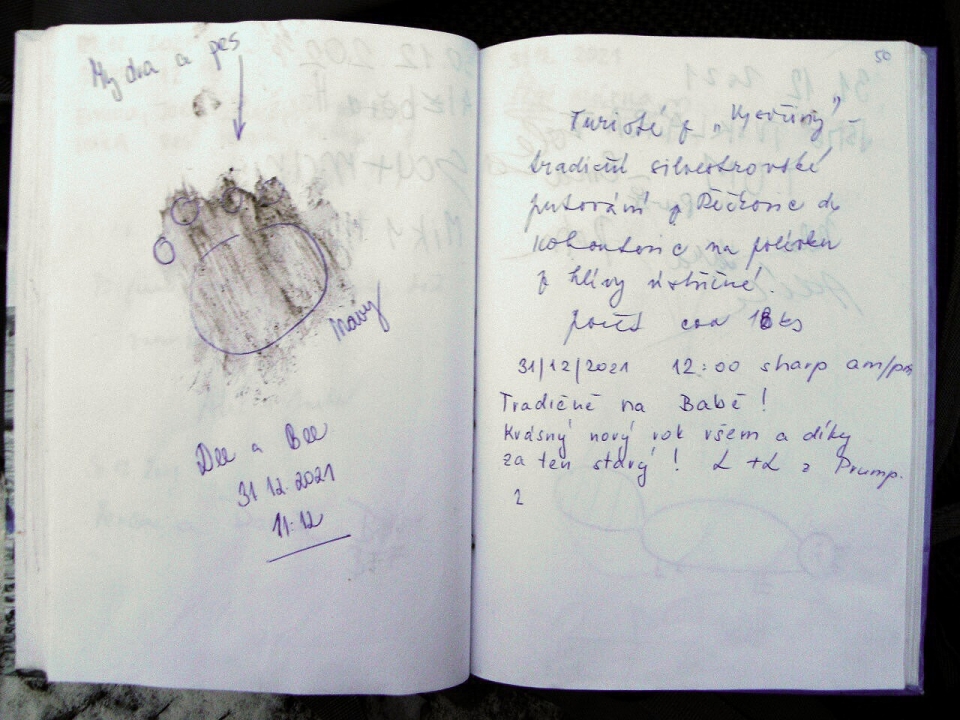 My dva a pes
Dee a Bee
31.12.2021
11:12
50
Turisté z „Vysočiny"
tradiční silvestrovské
putování z Řečkovic do
Kohoutovic na polévku
z hlívy ústřičné!
počet cca 18 ks
31/12/2021 12:00 sharp am/pm
Tradičně na Babě!
Krásný nový rok všem a díky
za ten starý! L+L z Prump.
2